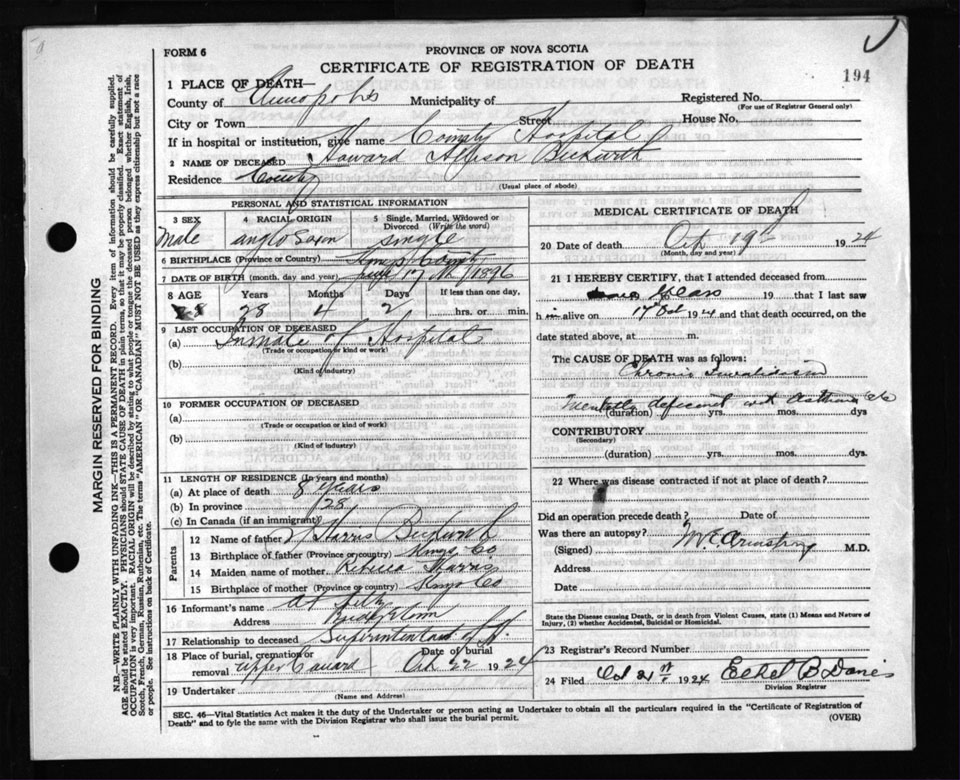 FORM 6
PROVINCE OF NOVA SCOTIA
CERTIFICATE OF REGISTRATION OF DEATH
194
1 PLACE OF DEATH—
County of Annapolis Municipality of Registered No.
(For use of Registrar General only)
City or Town Street House No.
If in hospital or institution, give name County Hospital
2 NAME OF DECEASED Howard Beckwith
Residence County
(Usual place of abode)
PERSONAL AND STATISTICAL INFORMATION
3 SEX 4 RACIAL ORIGIN 5 Single, Married, Widowed or Divorced (Write the word)
Male anglo Saxon Single
6 BIRTHPLACE (Province or Country) Kings County
7 DATE OF BIRTH (month, day and year) 17 1896
8 AGE Years Months Days If less than one day,
28 4 2 hrs. or min.
9 LAST OCCUPATION OF DECEASED
(a) Inmate of Hospital
(Trade or occupation or kind or work)
(b)
(Kind of industry)
10 FORMER OCCUPATION OF DECEASED
(a)
(Trade or occupation or kind of work)
(b)
(Kind of industry)
11 LENGTH OF RESIDENCE (In years and months)
(a) At place of death 8 years
(b) In province (28)
(c) In Canada (if an immigrant)
Parents
12 Name of father Harris Beckwith
13 Birthplace of father (Province or country) Kings Co
14 Maiden name of mother Rebecca Harris
15 Birthplace of mother (Province or country) Kings Co
16 Informant's name
Address Bridgetown
17 Relationship to deceased Superintendant of H.
18 Place of burial, cremation or removal Upper Canard Date of burial Oct 22 1924
19 Undertaker
(Name and Address)
MEDICAL CERTIFICATE OF DEATH
20 Date of death Oct 19th 1924
(Month, day and year)
21 I HEREBY CERTIFY, that I attended deceased from
19 that I last saw
him alive on 17 Oct 1924 and that death occurred, on the
date stated above, at m.
The CAUSE OF DEATH was as follows:
Chronic
Mentally deficient with
(duration) yrs. mos. dys
CONTRIBUTORY
(Secondary)
(duration) yrs. mos. dys.
22 Where was disease contracted if not at place of death?
Did an operation precede death? Date of
Was there an autopsy?
(Signed) Armstrong M.D.
Address
Date
State the Disease causing Death, or in death from Violent Causes, state (1) Means and Nature of
Injury, (2) whether Accidental, Suicidal or Homicidal.
23 Registrar's Record Number
24 Filed Oct 21st 1924 Ethel B Davies
Division Registrar
SEC. 46—Vital Statistics Act makes it the duty of the Undertaker or person acting as Undertaker to obtain all the particulars required in the "Certificate of Registration of
Death" and to fyle the same with the Division Registrar who shall issue the burial permit. (OVER)
MARGIN RESERVED FOR BINDING
N.B.—WRITE PLAINLY WITH UNFADING INK—THIS IS A PERMANENT RECORD. Every item of information should be carefully supplied.
AGE should be stated EXACTLY. PHYSICIANS should STATE CAUSE OF DEATH in plain terms, so that it may be properly classified. Exact statement of
OCCUPATION is very important. RACIAL ORIGIN will be described by stating to what people or tongue the deceased person belonged whether English, Irish,
Scotch, French, German, Russian, Ruthenian, etc. The terms "AMERICAN" or "CANADIAN" MUST NOT BE USED as they express citizenship but not a race
or people. See instructions on back of Certificate.